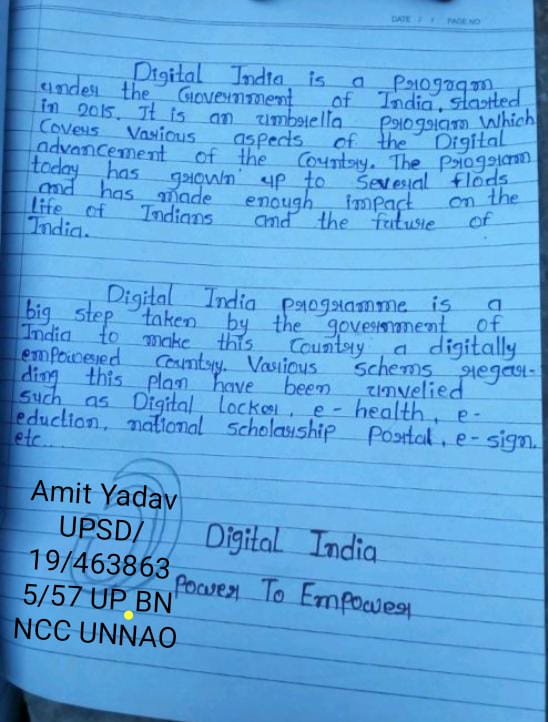 DATE / / PAGE NO
Digital India is a Program
under the Government of India, started
in 2015. It is an umbrella Program Which
Covers Various aspects of the Digital
advancement of the Country. The Program
today has grown up to Several flods
and has made enough impact on the
life of Indians and the future of
India.
Digital India programme is a
big step taken by the government of
India to make this Country a digitally
empowered Country. Various schems regar-
ding this plan have been unvelied
such as Digital Locker, e-health, e-
eduction, national scholarship Portal, e-sign.
etc...
Amit Yadav
UPSD/
19/463863
5/57 UP BN
NCC UNNAO
Digital India
Power To Empower